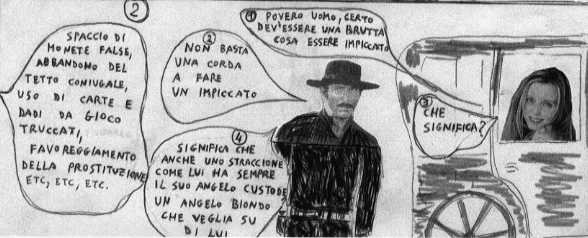 2
SPACCIO DI
MONETE FALSE,
ABBANDONO DEL
TETTO CONIUGALE,
USO DI CARTE E
DADI DA GIOCO
TRUCCATI,
FAVOREGGIAMENTO
DELLA PROSTITUZIONE
ETC, ETC, ETC.
1 POVERO UOMO, CERTO
DEV'ESSERE UNA BRUTTA
COSA ESSERE IMPICCATO
2
NON BASTA
UNA CORDA
A FARE
UN IMPICCATO
3
CHE
SIGNIFICA?
4
SIGNIFICA CHE
ANCHE UNO STRACCIONE
COME LUI HA SEMPRE
IL SUO ANGELO CUSTODE
UN ANGELO BIONDO
CHE VEGLIA SU
DI LUI